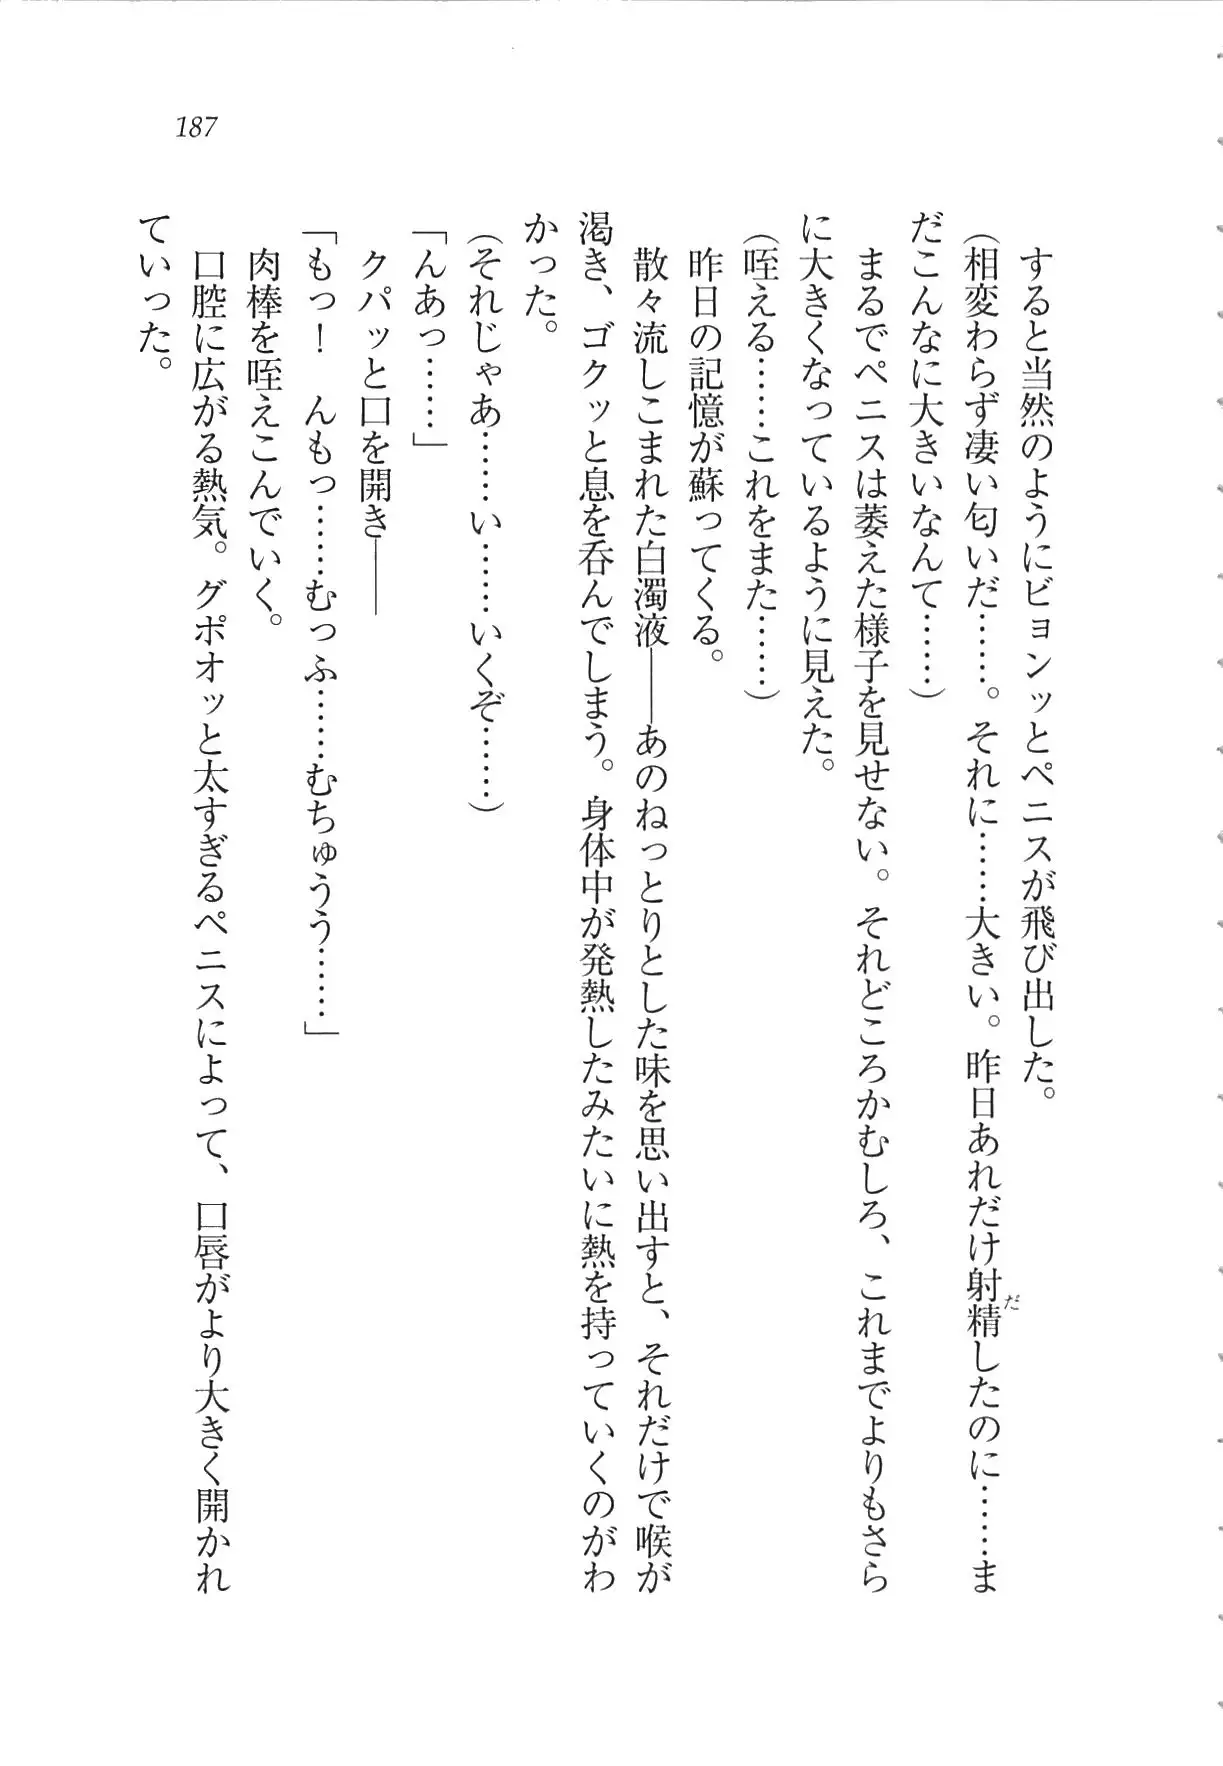 187
すると当然のようにビョンッとペニスが飛び出した。
(相変わらず凄い匂いだ……。それに……大きい。昨日あれだけ射精したのに……ま
だ
だこんなに大きいなんて……)
まるでペニスは萎えた様子を見せない。それどころかむしろ、これまでよりもさら
に大きくなっているように見えた。
(咥える……これをまた……)
昨日の記憶が蘇ってくる。
散々流しこまれた白濁液――あのねっとりとした味を思い出すと、それだけで喉が
渇き、ゴクッと息を呑んでしまう。身体中が発熱したみたいに熱を持っていくのがわ
かった。
(それじゃあ……い……いくぞ……)
「んあっ……」
クパッと口を開き――
「もっ！　んもっ……むっふ……むちゅうう……」
肉棒を咥えこんでいく。
口腔に広がる熱気。グポオッと太すぎるペニスによって、口唇がより大きく開かれ
ていった。